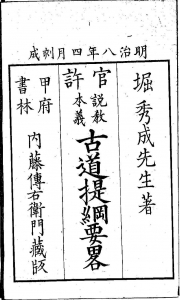 明治八年四月刻成
堀秀成先生著
官許
説教本義
古道提綱要畧
甲府書林
内藤傳右衛門藏版